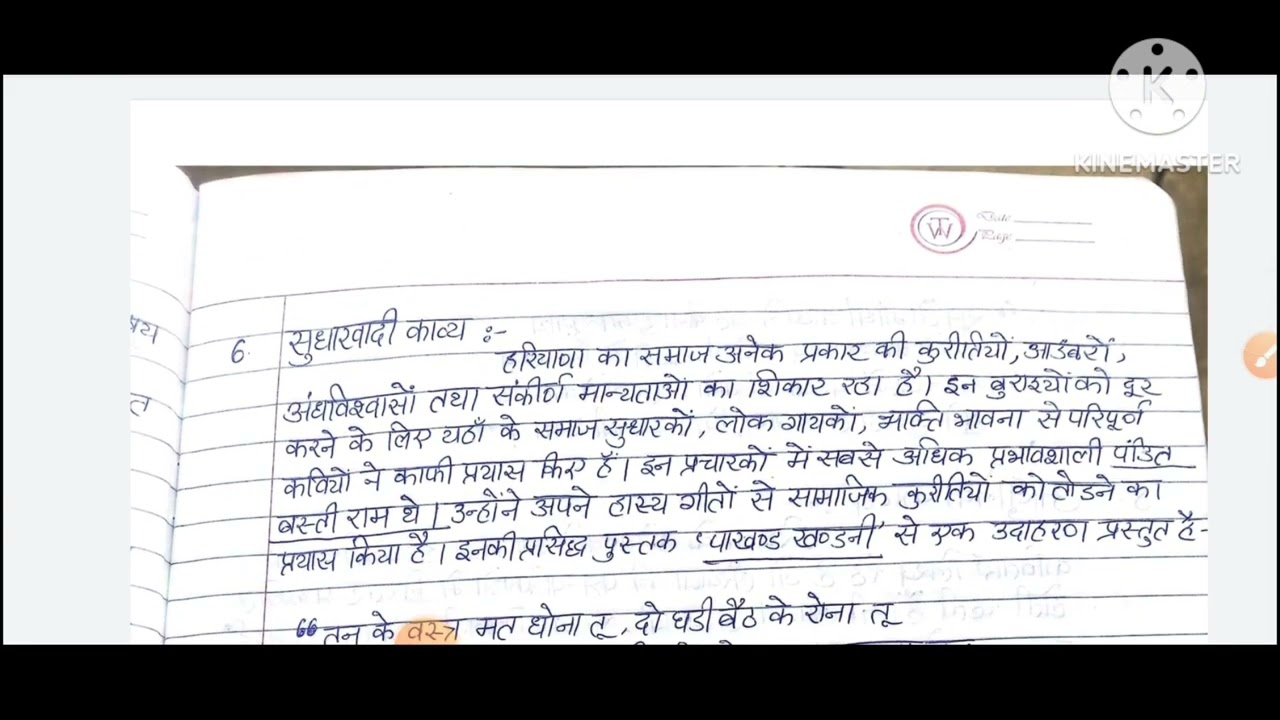 KINEMASTER
Date
Page
6. सुधारवादी काव्य :-
हरियाणा का समाज अनेक प्रकार की कुरीतियों, आडंबरों,
अंधविश्वासों तथा संकीर्ण मान्यताओ का शिकार रहा है। इन बुराइयों को दूर
करने के लिए यहाँ के समाज सुधारकों, लोक गायकों, भक्ति भावना से परिपूर्ण
कवियों ने काफी प्रयास किए हैं। इन प्रचारकों में सबसे अधिक प्रभावशाली पंडित
बस्ती राम थे। उन्होंने अपने हास्य गीतों से सामाजिक कुरीतियों को तोडने का
प्रयास किया है। इनकी प्रसिद्ध पुस्तक 'पाखण्ड खण्डनी' से एक उदाहरण प्रस्तुत है-
“तन के वस्त्र मत धोना तू, दो घडी बैठ के रोना तू